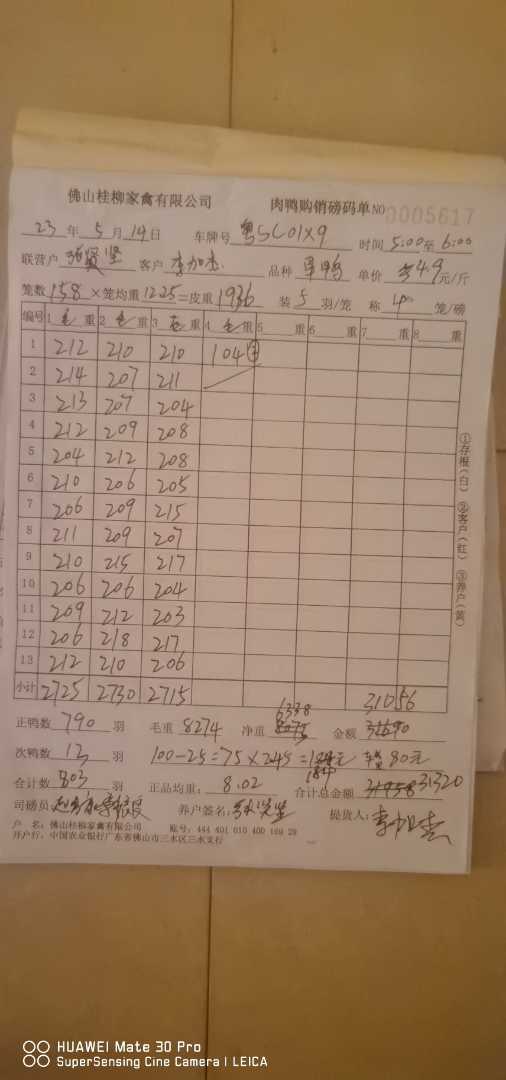 佛山桂柳家禽有限公司 肉鸭购销磅码单 NO 0005617
23 年 5 月 19 日 车牌号 粤SC01X9 时间 5:00 至 6:00
联营户 客户 李加 品种 单价 4.9 元/斤
笼数 158 × 笼均重 12.25 = 皮重 1936 装 5 羽/笼 称 4 笼/磅
编号 1 毛 重 2 毛 重 3 毛 重 4 毛 重 5 重 6 重 7 重 8 重
1 212 210 210 104
2 214 207 211
3 213 207 204
4 212 209 208
5 204 212 208
6 210 206 205
7 206 209 215
8 211 209 207
9 210 215 217
10 206 206 204
11 209 212 203
12 206 218 217
13 212 210 206
小计 2725 2730 2715
6338 31056
正鸭数 790 羽 毛重 8274 净重 金额
次鸭数 13 羽 100-25=75×245=184元 80元
184
合计数 803 羽 正品均重: 8.02 合计总金额 31320
司磅员 养户签名: 提货人:
户 名: 佛山桂柳家禽有限公司 账号: 444 401 010 400 169 29
开户行: 中国农业银行广东省佛山市三水区三水支行
①存根(白) ②客户(红) ③养户(黄)
HUAWEI Mate 30 Pro
SuperSensing Cine Camera | LEICA